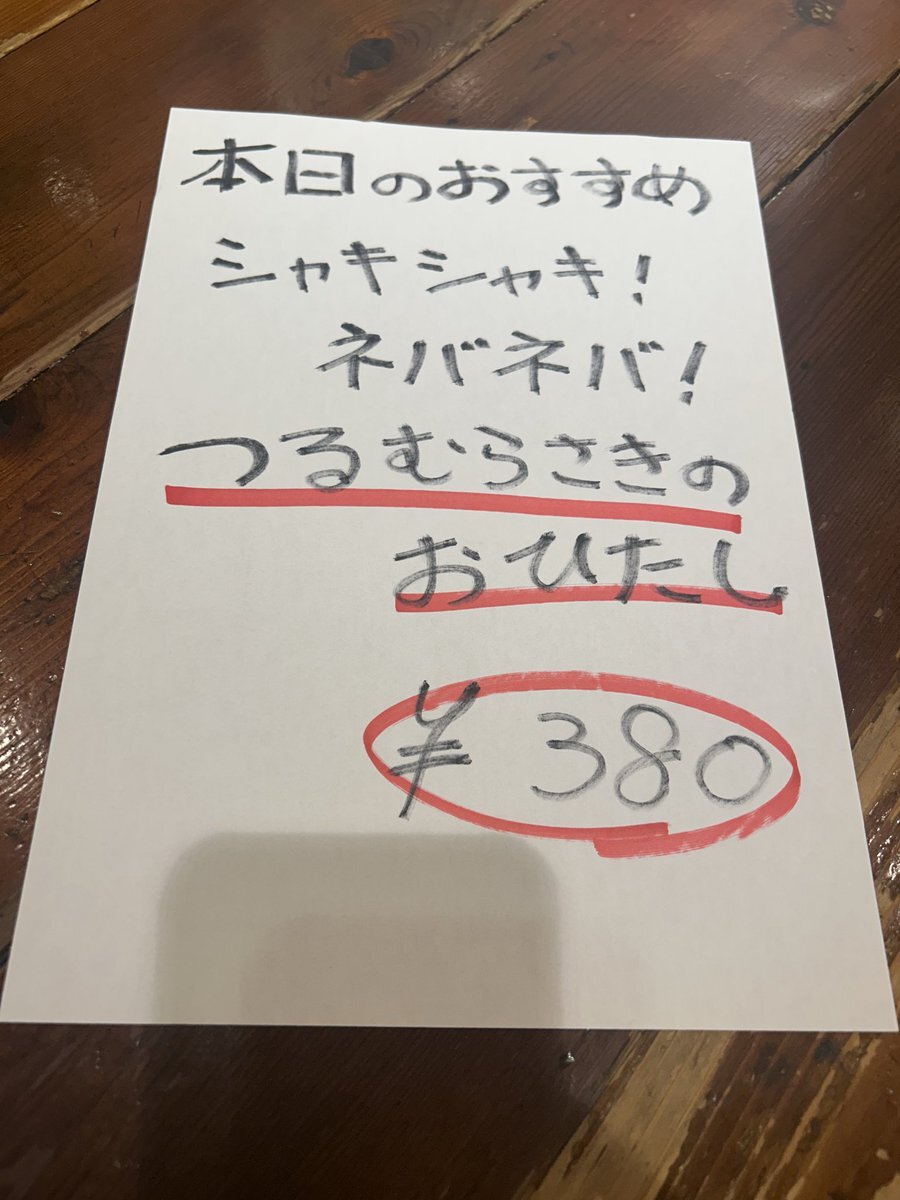 本日のおすすめ
シャキシャキ!
ネバネバ!
つるむらさきの
おひたし
¥380